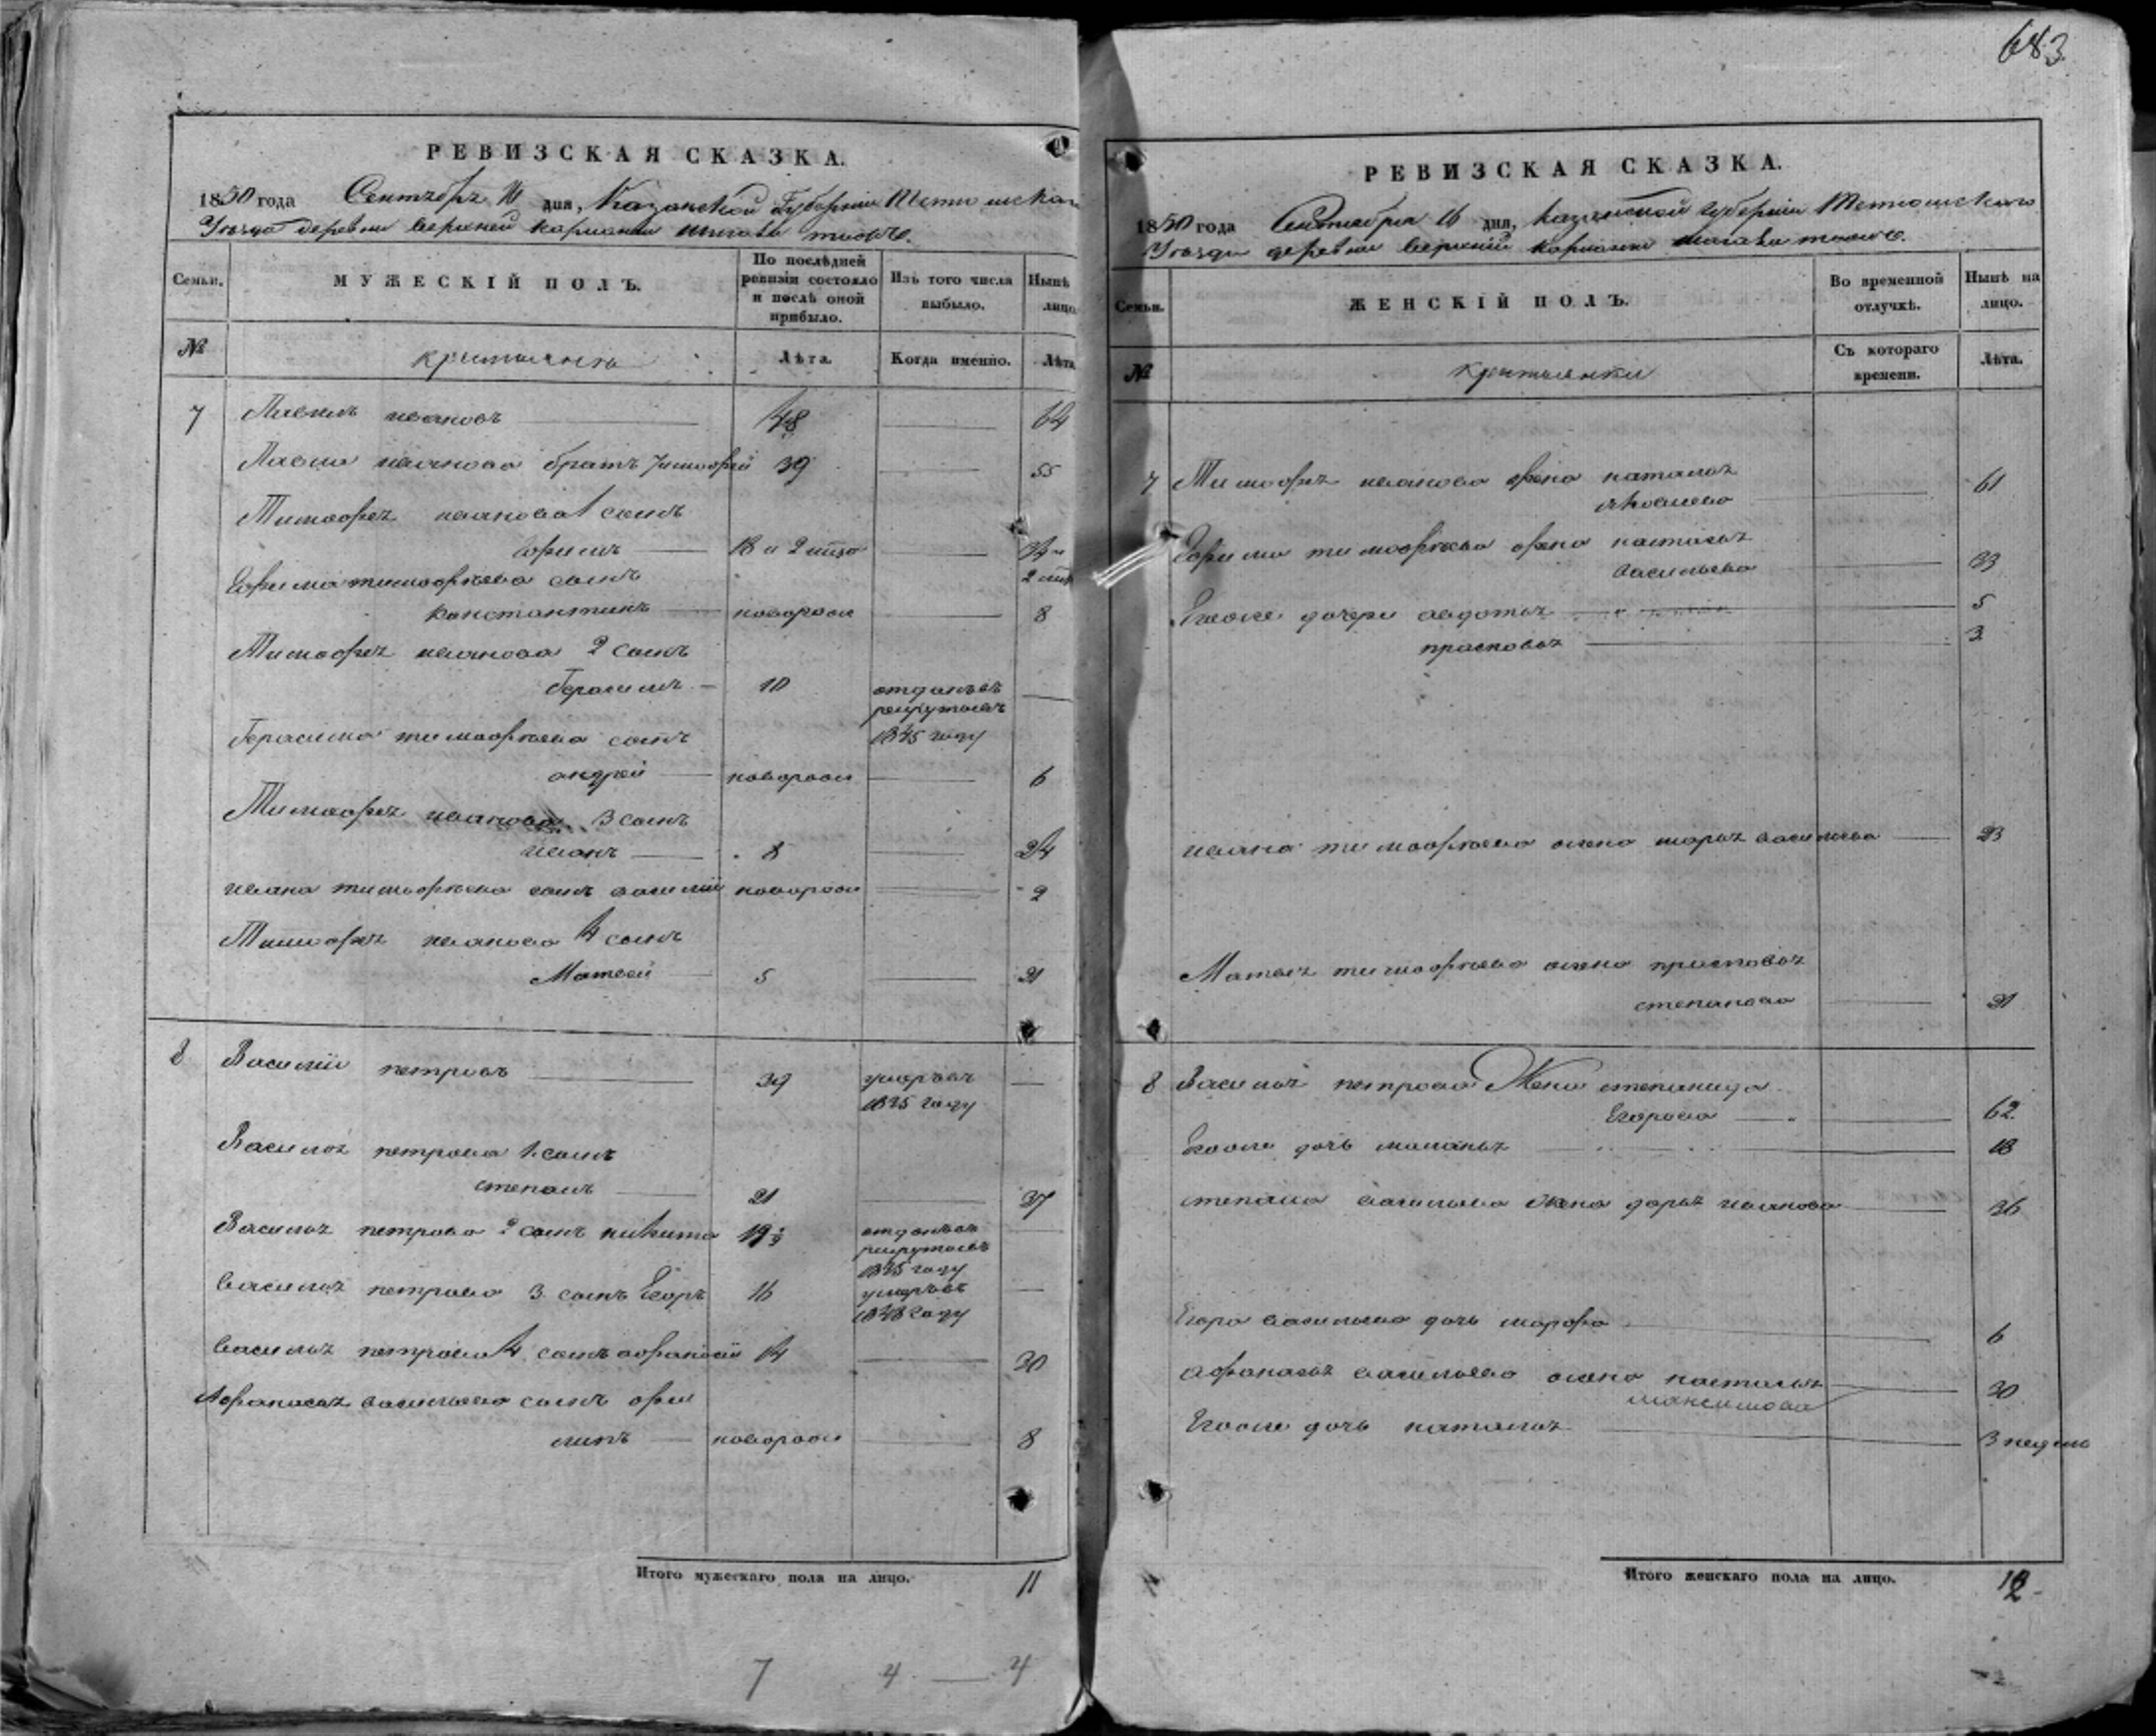 683
РЕВИЗСКАЯ СКАЗКА.
1850 года Сентября 16 дня, Казанской Губернии Тетюшскаго
Уезда деревни Верхней
Семьи.
МУЖЕСКІЙ ПОЛЪ.
По послѣдней ревизіи состояло и послѣ оной прибыло.
Изъ того числа выбыло.
Нынѣ на лицо
№
крестьянъ
Лѣта.
Когда именно.
Лѣта
7 Павелъ ивановъ 48 64
Павла иванова братъ Тимофей 39 55
Тимофея иванова 1 сынъ
Ефимъ 18 и 2 34 и
Ефима тимофеева сынъ 2
константинъ новорож 8
Тимофея иванова 2 сынъ
Герасимъ 10 отданъ въ
рекруты въ
Герасима тимофеева сынъ 1845 году
андрей новорож 6
Тимофея иванова 3 сынъ
иванъ 8 24
ивана тимофеева сынъ василий новорож 2
Тимофея иванова 4 сынъ
Матвей 5 21
8 Василий петровъ 39 умеръ въ
1835 году
Василья петрова 1 сынъ
степанъ 21 37
Василья петрова 2 сынъ никита 19 отданъ въ
рекруты въ
1835 году
Василья петрова 3 сынъ Егоръ 16 умеръ въ
1848 году
Василья петрова 4 сынъ афанасий 14 30
Афанасья васильева сынъ фи
липъ новорож 8
Итого мужескаго пола на лицо. 11
7 4 — 4
РЕВИЗСКАЯ СКАЗКА.
1850 года Сентября 16 дня, Казанской Губернии Тетюшскаго
Уезда деревни Верхней
Семьи.
ЖЕНСКІЙ ПОЛЪ.
Во временной отлучкѣ.
Нынѣ на лицо.
№
крестьянки
Съ котораго времени.
Лѣта.
7 Тимофея иванова жена наталья
яковлева 61
Ефима тимофеева жена настасья
васильева 33
Егоже дочери авдотья 5
прасковья 3
ивана тимофеева жена марья васильева 23
Матвея тимофеева жена прасковья
степанова 21
8 Василья петрова Жена степанида
Егорова 62
Егоже дочь маланья 18
степана васильева жена дарья иванова 36
Егора васильева дочь марфа 6
афанасья васильева жена настасья
максимова 30
Егоже дочь наталья 3 недель
Итого женскаго пола на лицо. 12